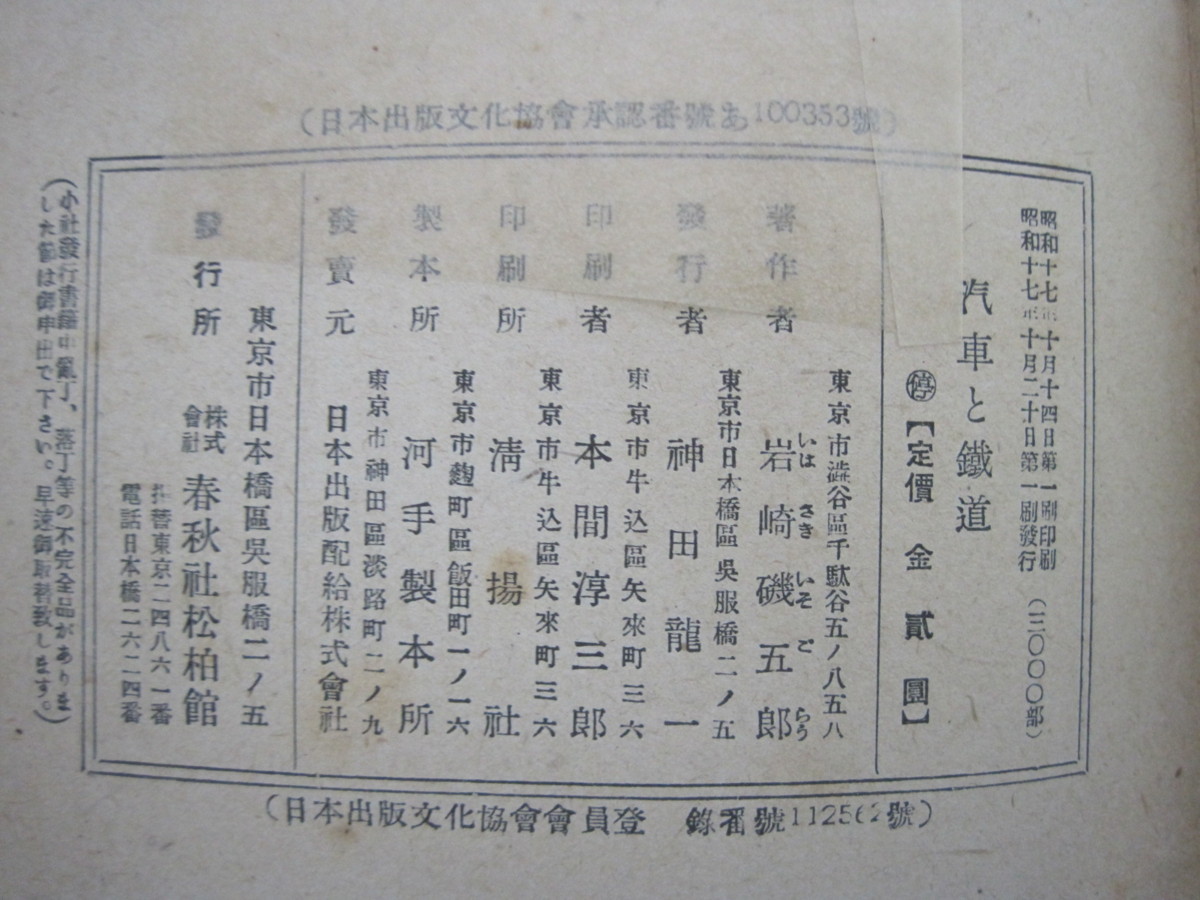 (日本出版文化協會承認番號あ100353號)
昭和十七年十月十四日第一刷印刷
昭和十七年十月二十日第一刷發行
(三〇〇〇部)
汽車と鐵道
停【定價 金貳圓】
東京市澁谷區千駄谷五ノ八五八
著作者 岩崎磯五郎
いは さき いそ ご らう
東京市日本橋區吳服橋二ノ五
發行者 神田龍一
東京市牛込區矢來町三六
印刷者 本間淳三郎
東京市牛込區矢來町三六
印刷所 淸揚社
東京市麴町區飯田町一ノ一六
製本所 河手製本所
東京市神田區淡路町二ノ九
發賣元 日本出版配給株式會社
東京市日本橋區吳服橋二ノ五
發行所 株式會社 春秋社松柏館
振替東京二四八六一番
電話日本橋二六二四番
(小社發行書籍中亂丁、落丁等の不完全品がありま
した節は御申出で下さい。早速御取替致します。)
(日本出版文化協會會員登 錄番號112562號)